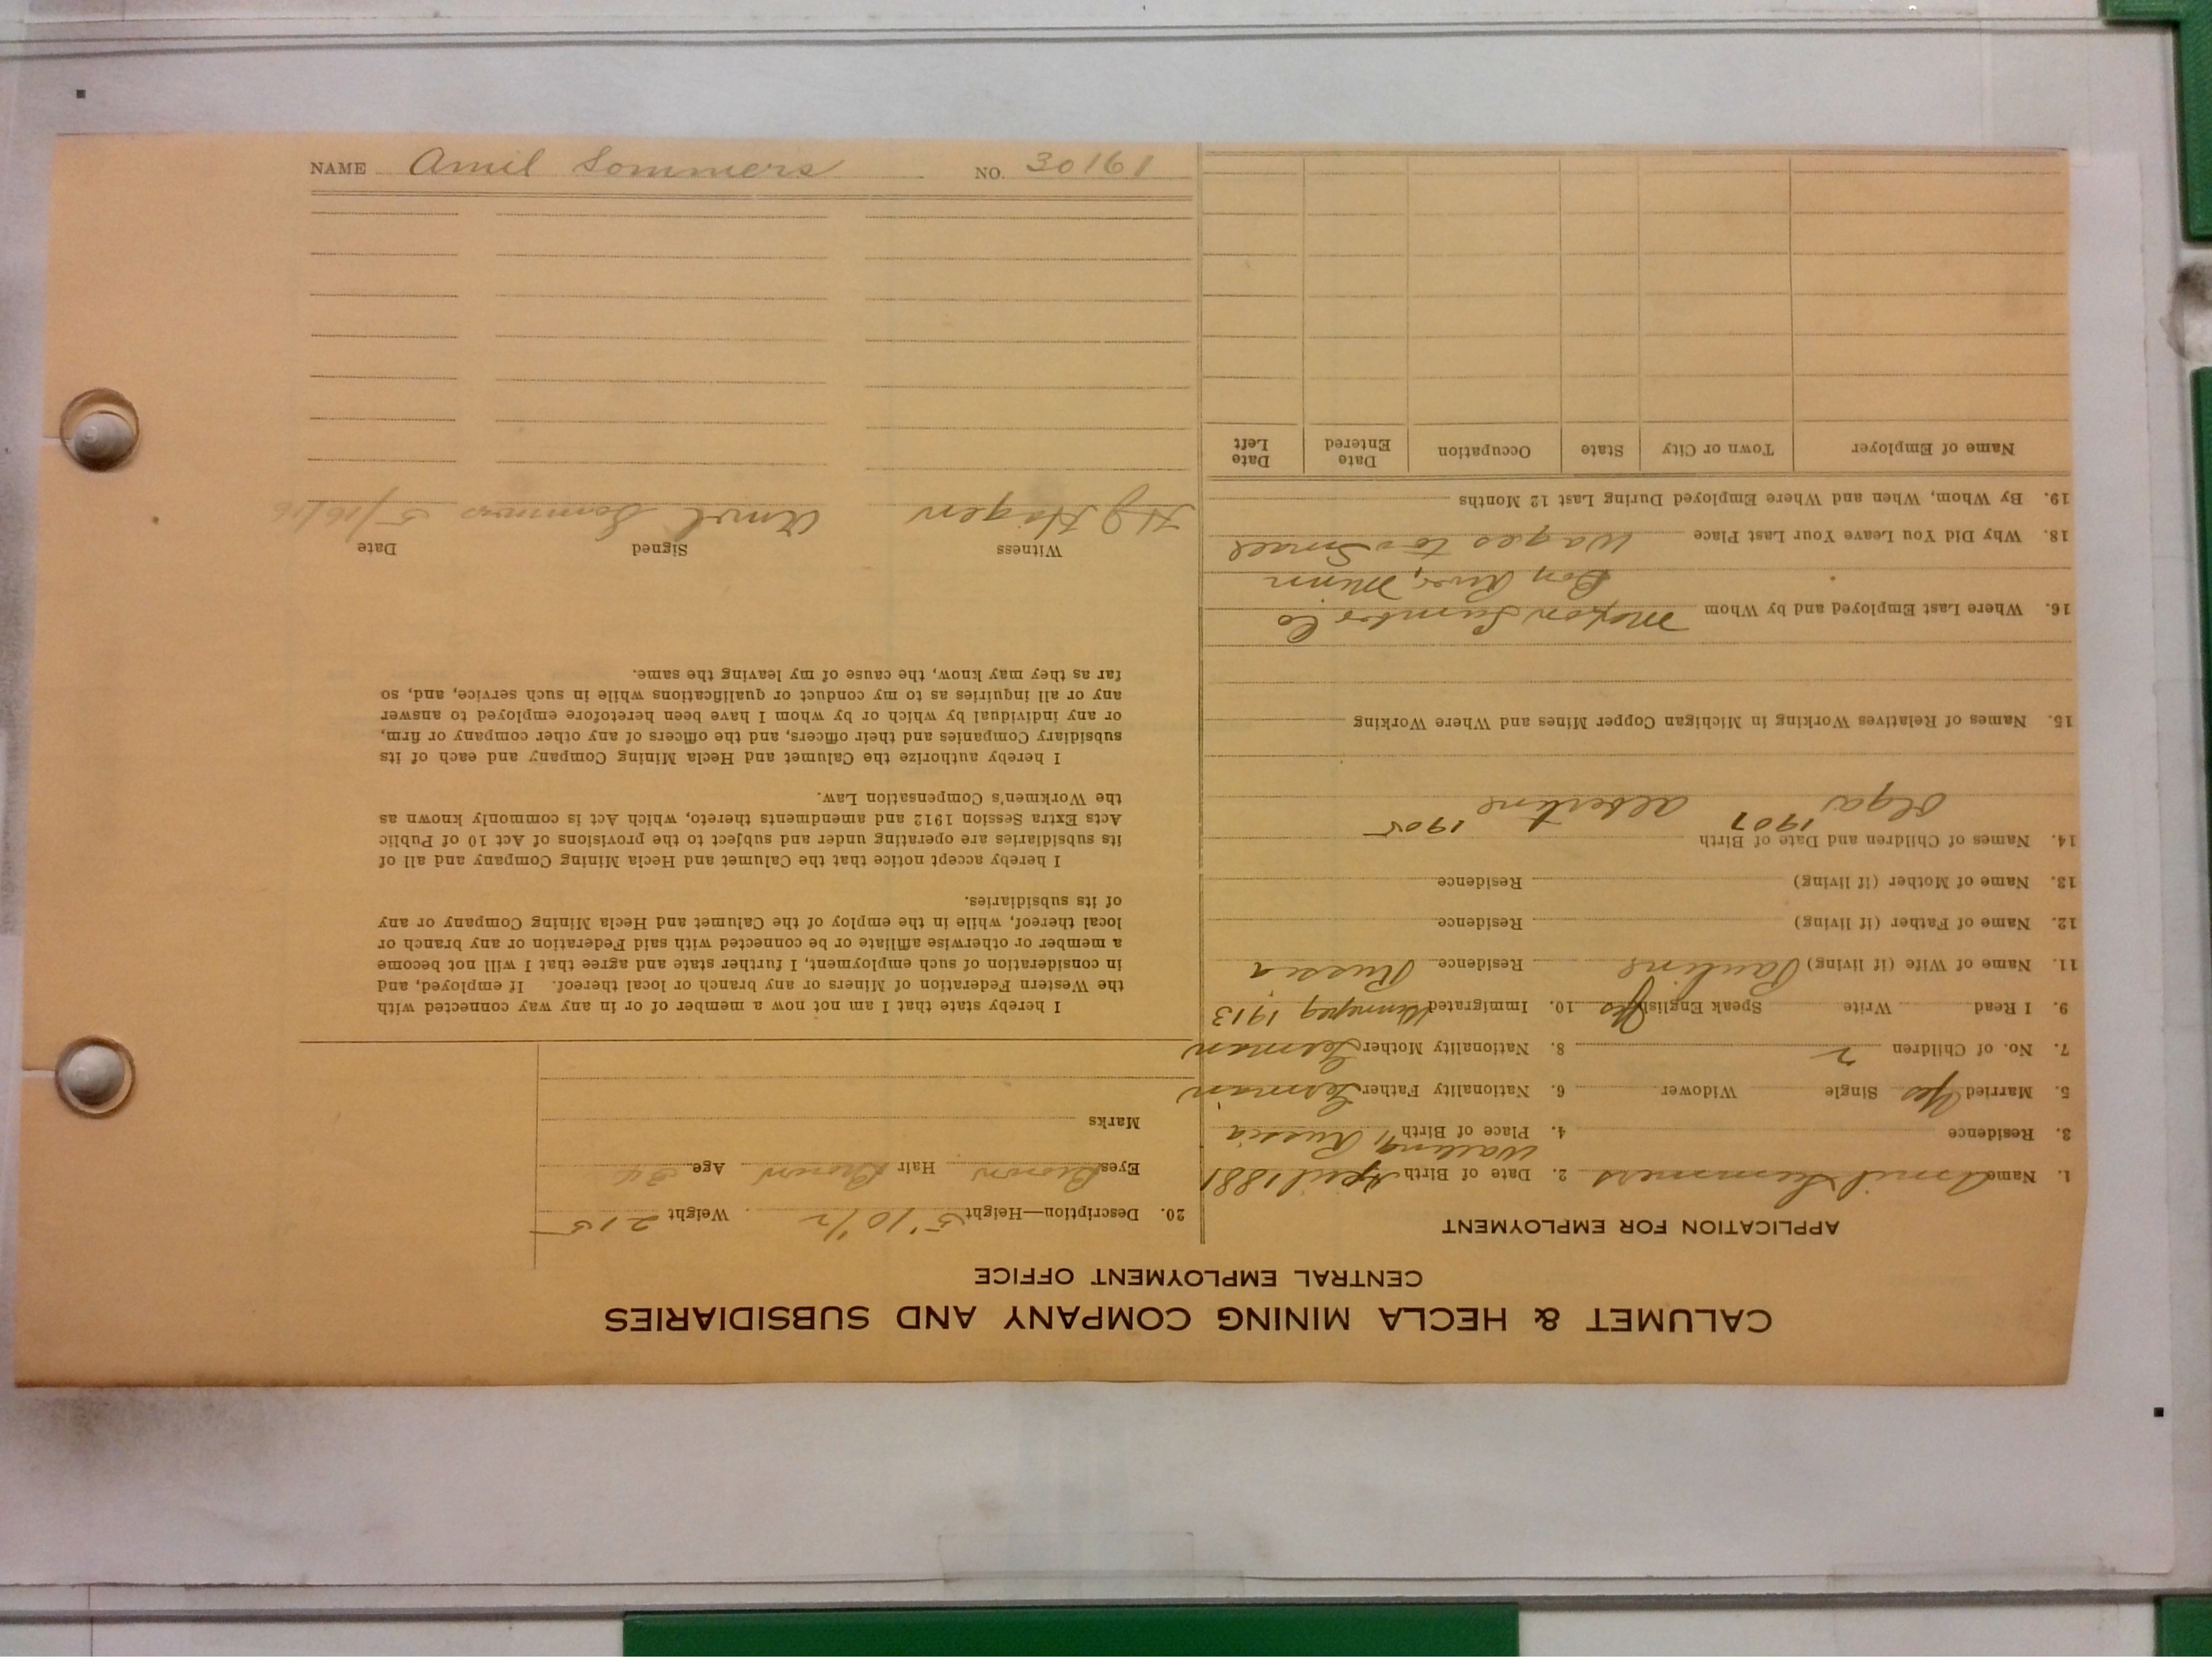 NAME Amil Sommers NO. 30161
CALUMET & HECLA MINING COMPANY AND SUBSIDIARIES
CENTRAL EMPLOYMENT OFFICE
APPLICATION FOR EMPLOYMENT
1. Name Amil Summers 2. Date of Birth April 1881
3. Residence 4. Place of Birth Russia
5. Married Yes Single Widower 6. Nationality Father German
7. No. of Children 2 8. Nationality Mother German
9. I Read Write Speak English Yes 10. Immigrated Winnipeg 1913
11. Name of Wife (if living) Pauline Residence Russia
12. Name of Father (if living) Residence
13. Name of Mother (if living) Residence
14. Names of Children and Date of Birth
Olga 1907 Albertine 1905
15. Names of Relatives Working in Michigan Copper Mines and Where Working
16. Where Last Employed and by Whom Lumber Co
River, Minn
18. Why Did You Leave Your Last Place Wages too Small
19. By Whom, When and Where Employed During Last 12 Months
Name of Employer Town or City State Occupation Date Entered Date Left
20. Description—Height 5' 10 1/2" Weight 215
Eyes Brown Hair Brown Age 34
Marks
I hereby state that I am not now a member of or in any way connected with
the Western Federation of Miners or any branch or local thereof. If employed, and
in consideration of such employment, I further state and agree that I will not become
a member or otherwise affiliate or be connected with said Federation or any branch or
local thereof, while in the employ of the Calumet and Hecla Mining Company or any
of its subsidiaries.
I hereby accept notice that the Calumet and Hecla Mining Company and all of
its subsidiaries are operating under and subject to the provisions of Act 10 of Public
Acts Extra Session 1912 and amendments thereto, which Act is commonly known as
the Workmen's Compensation Law.
I hereby authorize the Calumet and Hecla Mining Company and each of its
subsidiary Companies and their officers, and the officers of any other company or firm,
or any individual by which or by whom I have been heretofore employed to answer
any or all inquiries as to my conduct or qualifications while in such service, and, so
far as they may know, the cause of my leaving the same.
Witness Signed Date
H J Hagen Amil Sommers 5/16/16